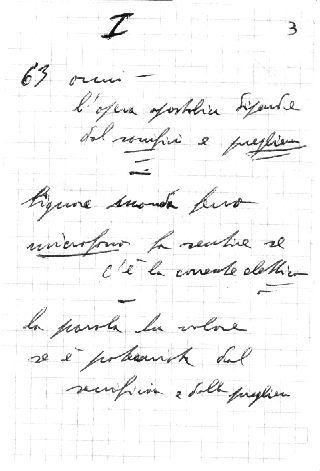 I 3
63 anni —
l'opera apostolica dipende
dal sacrificio e preghiera
microfono fa sentire se
c'è la corrente elettrica
la parola ha valore
se è potenziata dal
sacrificio e dalla preghiera